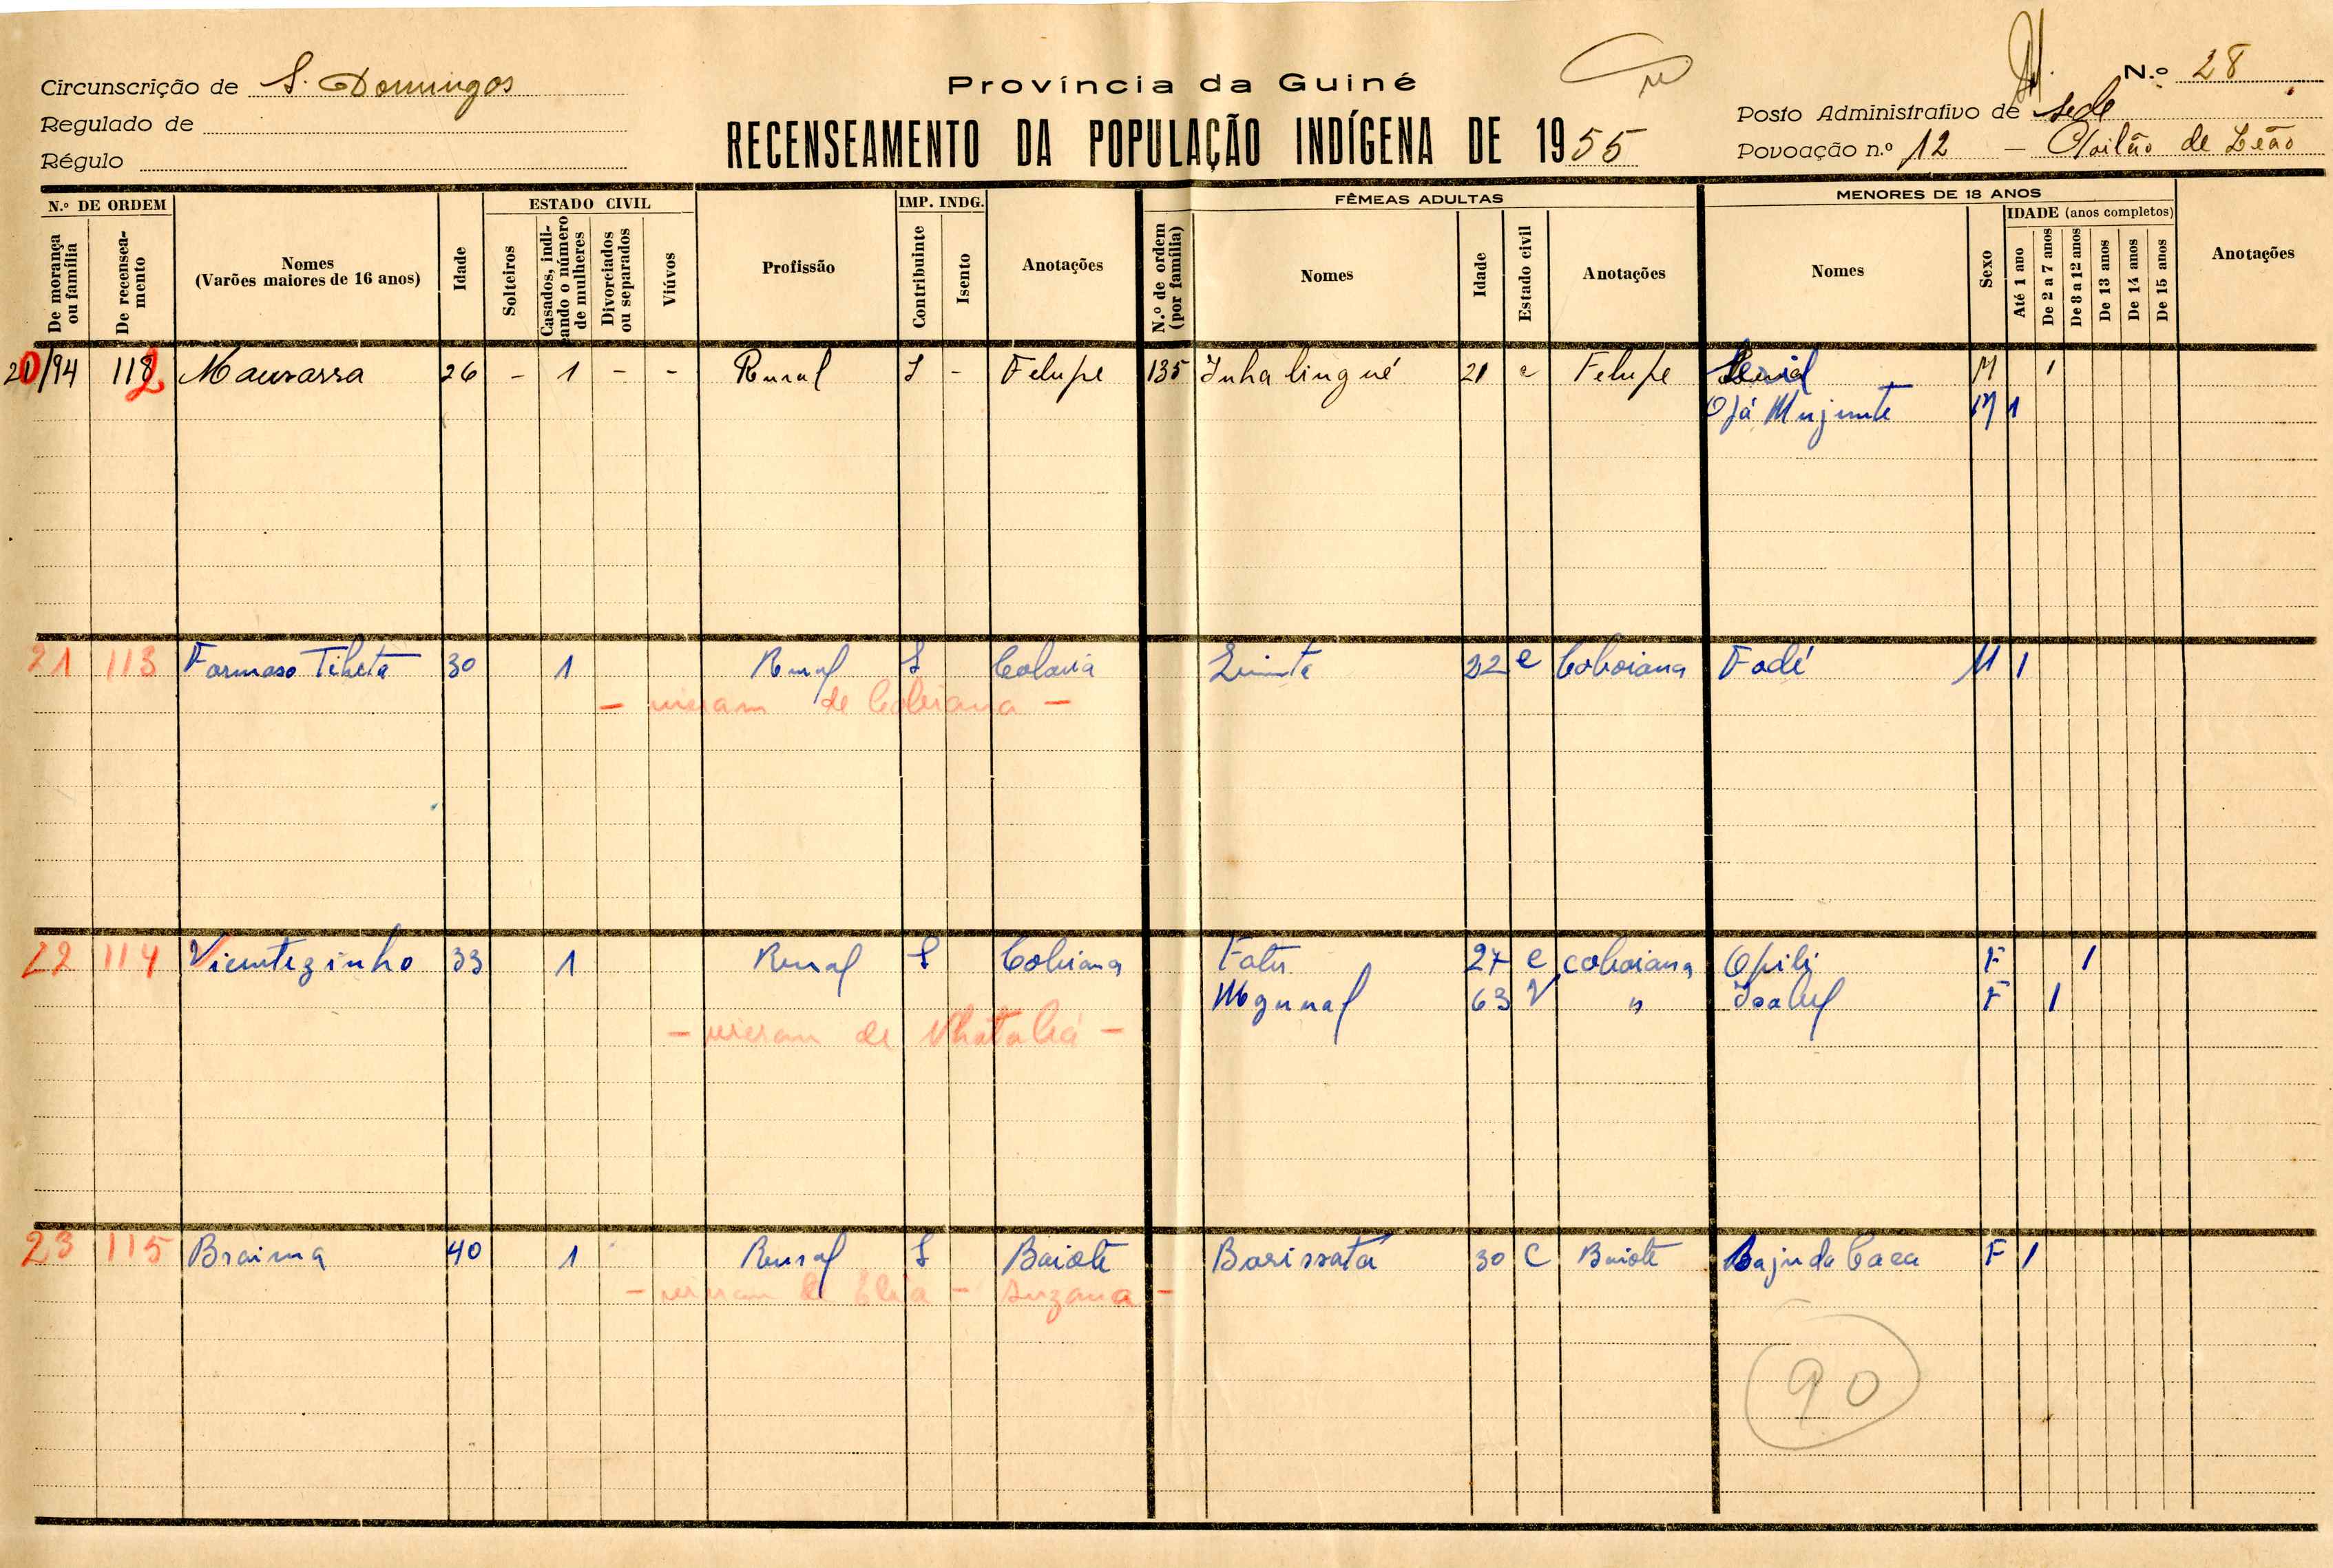 Circunscrição de S. Domingos
Regulado de
Régulo
Província da Guiné
RECENSEAMENTO DA POPULAÇÃO INDÍGENA DE 1955
N.º 28
Posto Administrativo de sede
Povoação n.º 12 — Poilão de Leão
N.º DE ORDEM
De morança ou família
De recenseamento
Nomes
(Varões maiores de 16 anos)
Idade
ESTADO CIVIL
Solteiros
Casados, indicando o número de mulheres
Divorciados ou separados
Viúvos
Profissão
IMP. INDG.
Contribuinte
Isento
Anotações
FÊMEAS ADULTAS
N.º de ordem (por família)
Nomes
Idade
Estado civil
Anotações
MENORES DE 18 ANOS
Nomes
Sexo
IDADE (anos completos)
Até 1 ano
De 2 a 7 anos
De 8 a 12 anos
De 13 anos
De 14 anos
De 15 anos
Anotações
20/94 112 Maurassa 26 - 1 - - Rural S - Felupe 135 Inhalingué 21 c Felupe M 1
Ojá Mujunte M 1
21 113 Formoso Tibeta 30 1 Rural S 22 c Coboiana Fodé M 1
- vieram de Cobiana -
22 114 Vicentezinho 33 1 Rural S Cobiana Fatu 27 c coboiana Opili F 1
63 V " Isabel F 1
- vieram de
23 115 Braima 40 1 Rural S Baiote Barissatá 30 C Baiote Bajuda Caca F 1
- vieram de Elia - Suzana -
90